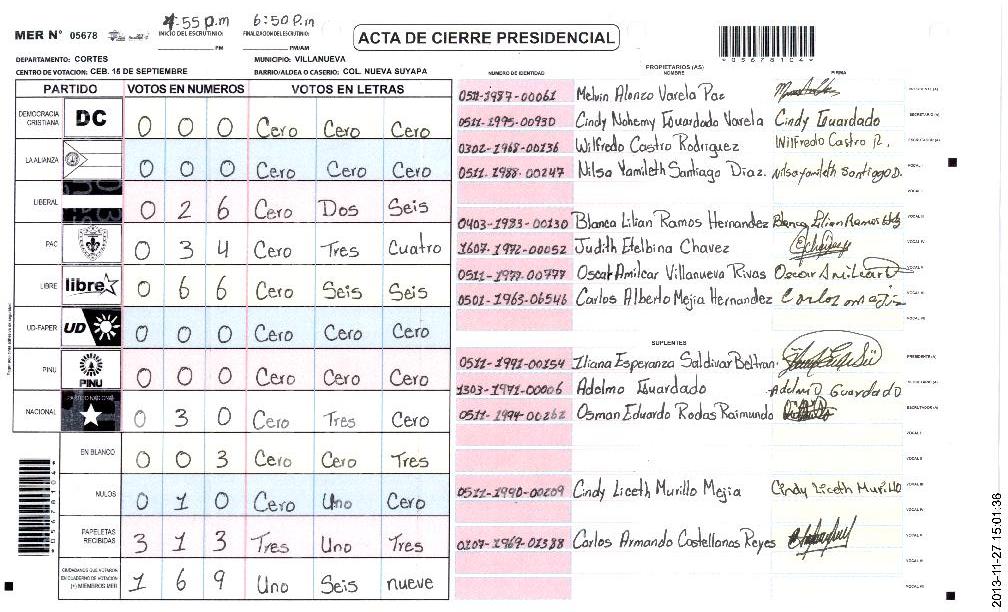 4:55 p.m 6:50 P.m
MER N° 05678 INICIO DEL ESCRUTINIO: PM FINALIZACION DEL ESCRUTINIO: PM/AM
ACTA DE CIERRE PRESIDENCIAL
*05678104*
DEPARTAMENTO: CORTES MUNICIPIO: VILLANUEVA
CENTRO DE VOTACION: CEB. 15 DE SEPTIEMBRE BARRIO/ALDEA O CASERIO: COL. NUEVA SUYAPA
PARTIDO VOTOS EN NUMEROS VOTOS EN LETRAS
DEMOCRACIA CRISTIANA DC 0 0 0 Cero Cero Cero
LA ALIANZA 0 0 0 Cero Cero Cero
LIBERAL 0 2 6 Cero Dos Seis
PAC 0 3 4 Cero Tres Cuatro
LIBRE libre 0 6 6 Cero Seis Seis
UD-FAPER UD 0 0 0 Cero Cero Cero
PINU PINU 0 0 0 Cero Cero Cero
NACIONAL PARTIDO NACIONAL 0 3 0 Cero Tres Cero
EN BLANCO 0 0 3 Cero Cero Tres
NULOS 0 1 0 Cero Uno Cero
PAPELETAS RECIBIDAS 3 1 3 Tres Uno Tres
CIUDADANOS QUE VOTARON EN CUADERNO DE VOTACION (+) MIEMBROS MER 1 6 9 Uno Seis nueve
*05678104*
PROPIETARIOS (AS)
NUMERO DE IDENTIDAD NOMBRE FIRMA
0511-1987-00061 Melvin Alonzo Varela Paz PRESIDENTE (A)
0511-1995-00930 Cindy Nohemy Guardado Varela Cindy Guardado SECRETARIO (A)
0302-1968-00136 Wilfredo Castro Rodriguez Wilfredo Castro R. ESCRUTADOR (A)
0511-1988-00247 Nilsa Yamileth Santiago Diaz. Nilsa Yamileth Santiago D. VOCAL I
VOCAL II
0403-1983-00130 Blanca Lilian Ramos Hernandez Blanca Lilian Ramos VOCAL III
1607-1972-00052 Judith Etelbina Chavez VOCAL IV
0511-1977-00777 Oscar Amilcar Villanueva Rivas Oscar Amilcar VOCAL V
0501-1963-06546 Carlos Alberto Mejia Hernandez Carlos mejia VOCAL VI
VOCAL VII
SUPLENTES
0511-1991-00154 Iliana Esperanza Saldivar Beltran. PRESIDENTE (A)
1303-1971-00006 Adelmo Guardado Adelmo Guardado SECRETARIO (A)
0511-1994-00262 Osman Eduardo Rodas Raimundo ESCRUTADOR (A)
VOCAL I
VOCAL II
0511-1990-00209 Cindy Liceth Murillo Mejia Cindy Liceth Murillo VOCAL III
VOCAL IV
0107-1967-01388 Carlos Armando Castellanos Reyes VOCAL V
VOCAL VI
VOCAL VII
2013-11-27 15:01:36